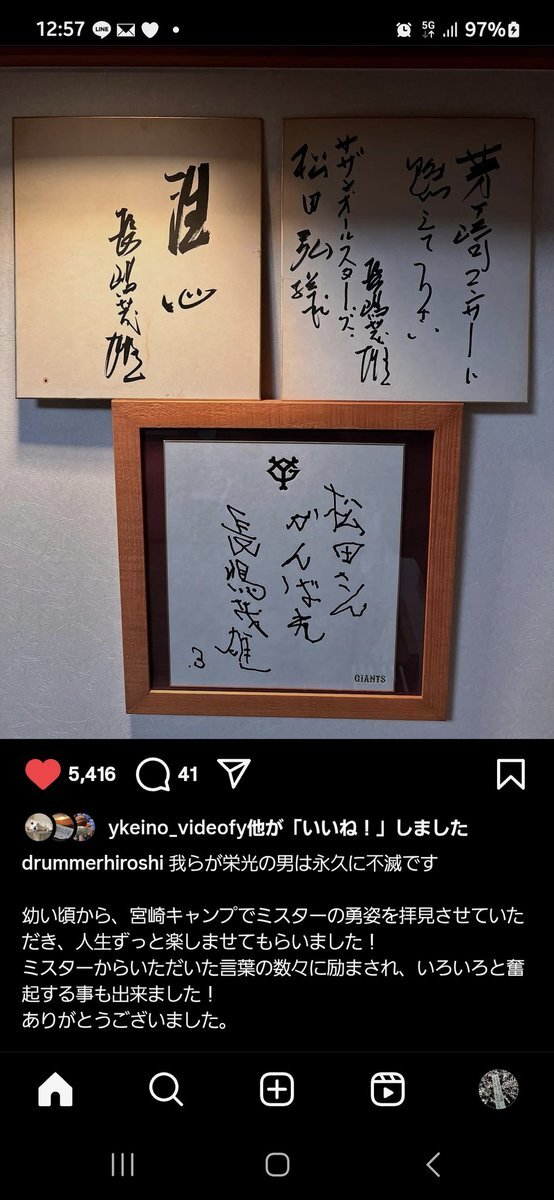 12:57
LINE
5G
97%
心
長嶋茂雄
茅ヶ崎コンサート
燃えて下さい
長嶋茂雄
サザンオールスターズ
松田弘様
松田さん
がんばれ
長嶋茂雄
3
GIANTS
5,416
41
ykeino_videofy他が「いいね！」しました
drummerhiroshi 我らが栄光の男は永久に不滅です
幼い頃から、宮崎キャンプでミスターの勇姿を拝見させていた
だき、人生ずっと楽しませてもらいました！
ミスターからいただいた言葉の数々に励まされ、いろいろと奮
起する事も出来ました！
ありがとうございました。